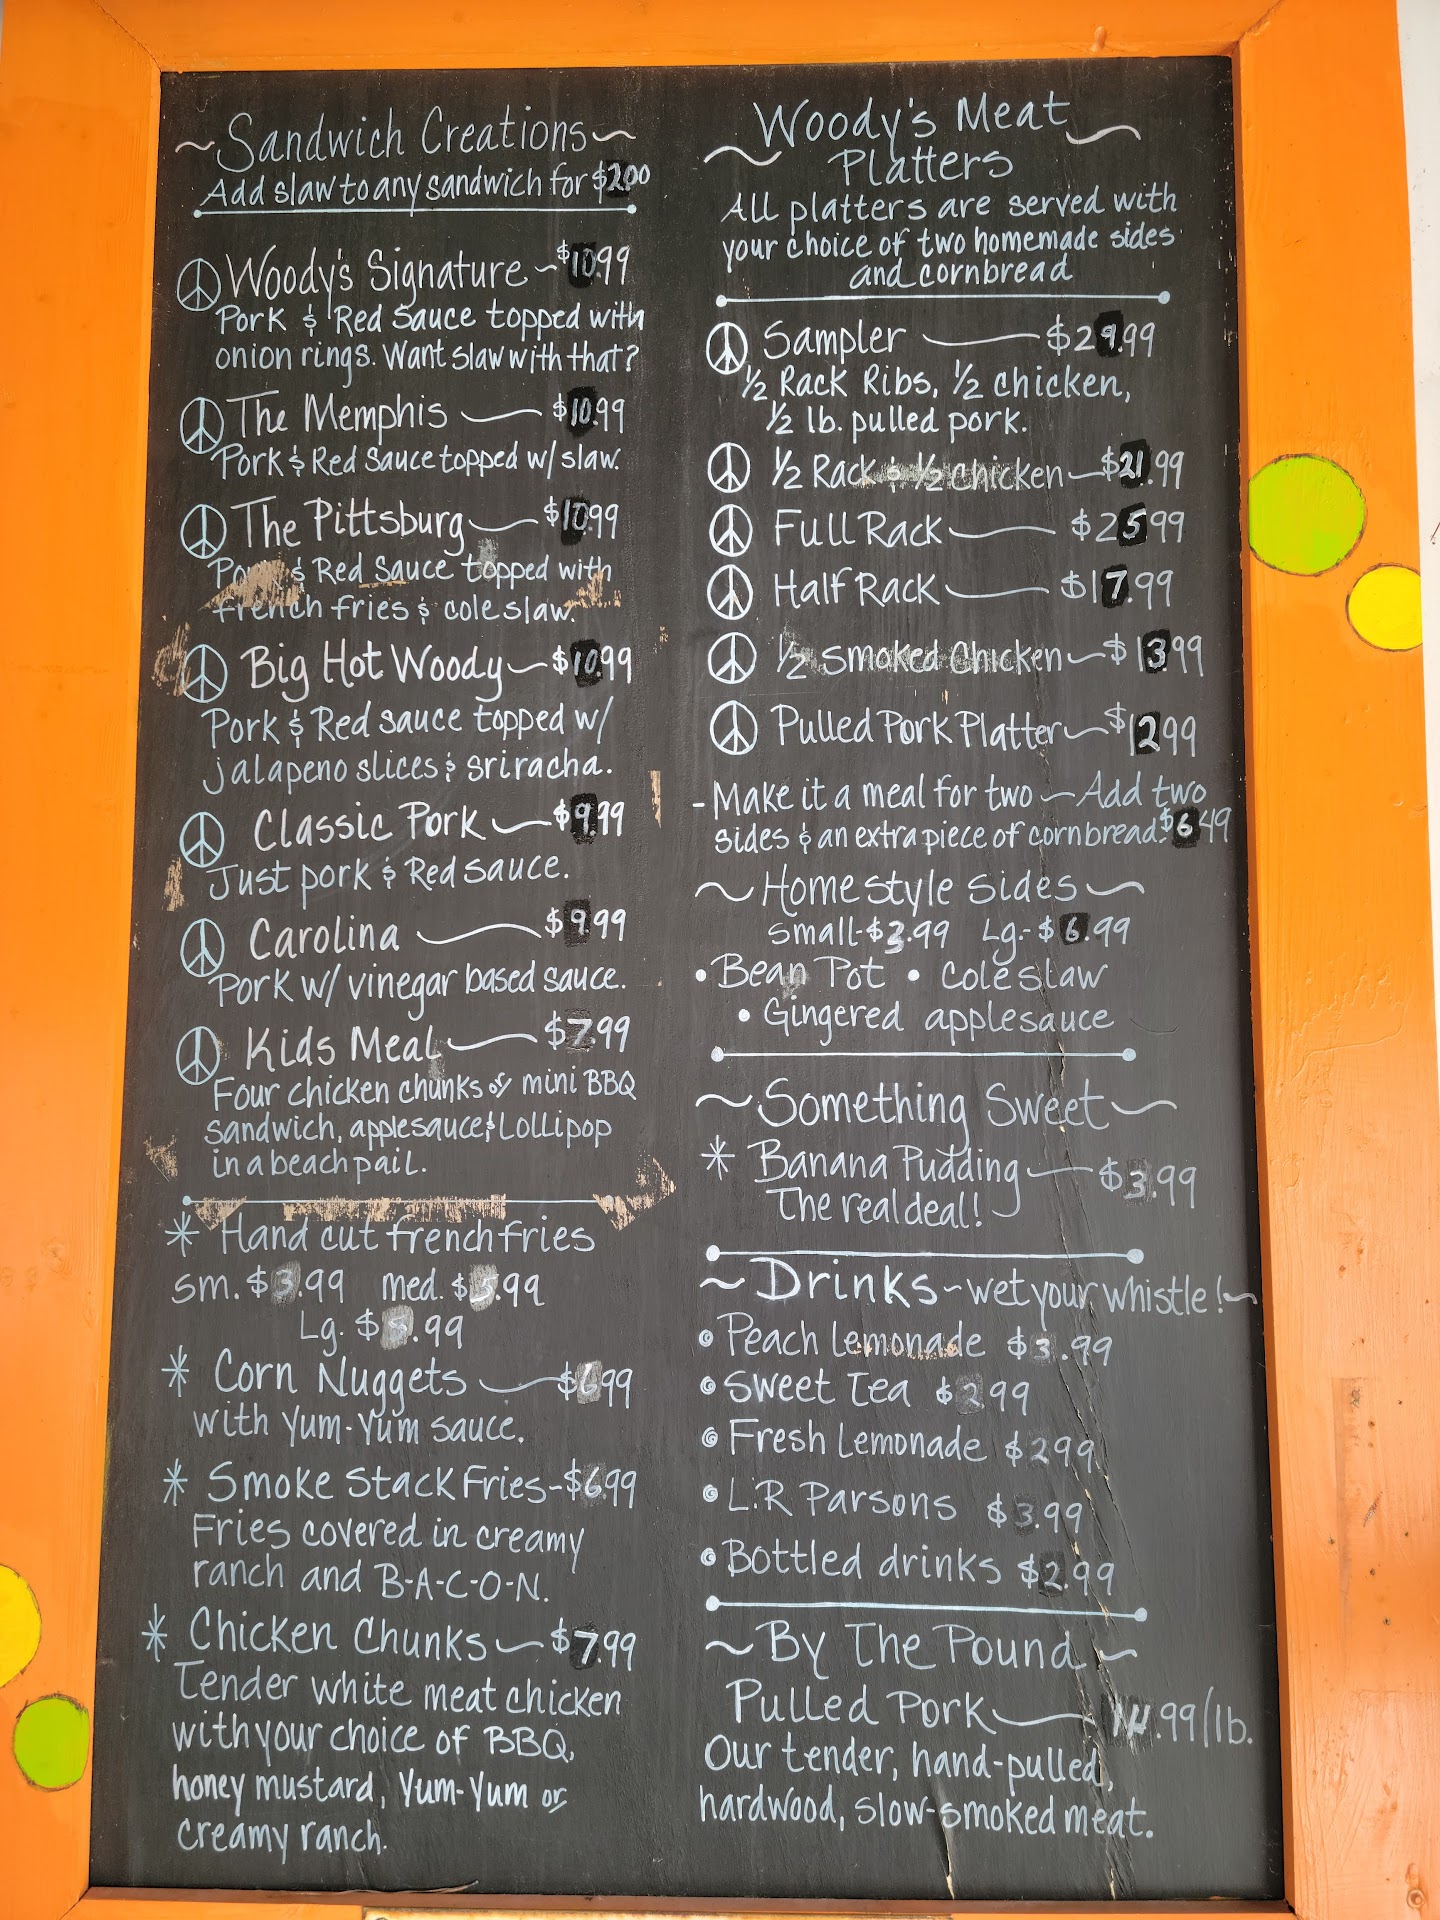 ~ Sandwich Creations ~
Add slaw to any sandwich for $2.00
Woody's Signature ~ $10.99
Pork & Red Sauce topped with
onion rings. Want slaw with that?
The Memphis — $10.99
Pork & Red Sauce topped w/ slaw.
The Pittsburg — $10.99
Pork & Red Sauce topped with
french fries & coleslaw.
Big Hot Woody — $10.99
Pork & Red sauce topped w/
jalapeno slices & sriracha.
Classic Pork — $9.99
Just pork & Red sauce.
Carolina — $9.99
Pork w/ vinegar based sauce.
Kids Meal — $7.99
Four chicken chunks or mini BBQ
sandwich, applesauce & Lollipop
in a beach pail.
* Hand cut french fries
sm. $3.99 med. $5.99
Lg. $ .99
* Corn Nuggets — $6.99
with Yum-Yum sauce.
* Smoke Stack Fries - $6.99
Fries covered in creamy
ranch and B-A-C-O-N.
* Chicken Chunks — $7.99
Tender white meat chicken
with your choice of BBQ,
honey mustard, Yum-Yum or
creamy ranch.
~ Woody's Meat ~
Platters
All platters are served with
your choice of two homemade sides
and cornbread
Sampler — $29.99
1/2 Rack Ribs, 1/2 chicken,
1/2 lb. pulled pork.
1/2 Rack & 1/2 chicken — $21.99
Full Rack — $25.99
Half Rack — $17.99
1/2 smoked Chicken — $13.99
Pulled Pork Platter — $12.99
- Make it a meal for two — Add two
sides & an extra piece of cornbread. $6.49
~ Homestyle Sides ~
small - $3.99 Lg. - $6.99
• Bean Pot • coleslaw
• Gingered applesauce
~ Something Sweet ~
* Banana Pudding — $3.99
The real deal!
~ Drinks ~ wet your whistle! ~
• Peach Lemonade $3.99
• Sweet Tea $2.99
• Fresh Lemonade $2.99
• L.R Parsons $3.99
• Bottled drinks $2.99
~ By The Pound ~
Pulled Pork — 14.99/lb.
Our tender, hand-pulled,
hardwood, slow-smoked meat.